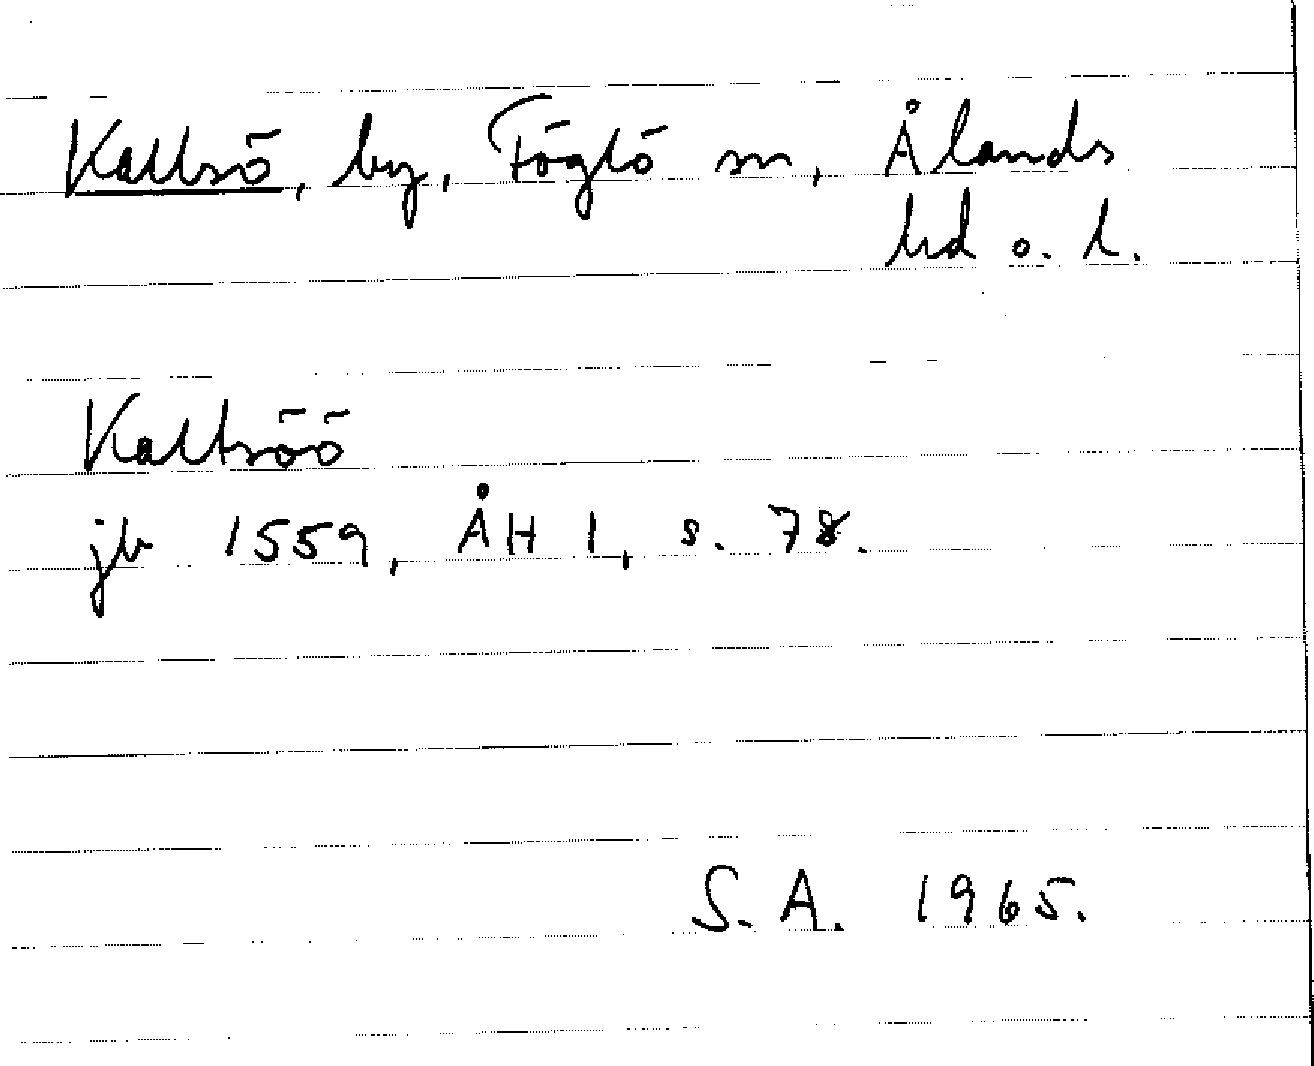 Kallsö, by, Föglö sn, Ålands
hd o. l.
Kaltsöö
jb 1559, ÅH 1, s. 78.
S. A. 1965.